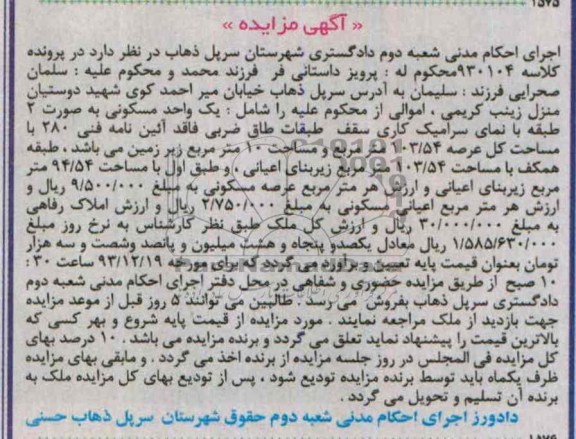 ۱۵۷۵
« آگهی مزایده »
اجرای احکام مدنی شعبه دوم دادگستری شهرستان سرپل ذهاب در نظر دارد در پرونده
کلاسه ۹۳۰۱۰۴محکوم له : پرویز داستانی فر  فرزند محمد و محکوم علیه : سلمان
صحرایی فرزند : سلیمان به آدرس سرپل ذهاب خیابان میر احمد کوی شهید دوستیان
منزل زینب کریمی ، اموالی از محکوم علیه را شامل : یک واحد مسکونی به صورت ۲
طبقه با نمای سرامیک کاری سقف  طبقات طاق ضربی فاقد آئین نامه فنی ۲۸۰ با
مساحت کل عرصه ۱۰۳/۵۴ متر مربع و مساحت ۱۰ متر مربع زیر زمین می باشد ، طبقه
همکف با مساحت ۱۰۳/۵۴ متر مربع زیربنای اعیانی ، و طبق اول با مساحت ۹۴/۵۴ متر
مربع زیربنای اعیانی و ارزش هر متر مربع عرصه مسکونی به مبلغ ۹/۵۰۰/۰۰۰ ریال و
ارزش هر متر مربع اعیانی مسکونی به مبلغ ۲/۷۵۰/۰۰۰ ریال و ارزش املاک رفاهی
به مبلغ ۳۰/۰۰۰/۰۰۰ ریال و ارزش کل ملک طبق نظر کارشناس به نرخ روز مبلغ
۱/۵۸۵/۶۳۰/۰۰۰ ریال معادل یکصدو پنجاه و هشت میلیون و پانصد وشصت و سه هزار
تومان بعنوان قیمت پایه تعیین و برآورد می گردد که برای مورخه ۹۳/۱۲/۱۹ ساعت ۳۰ :
۱۰ صبح  از طریق مزایده حضوری و شفاهی در محل دفتر اجرای احکام مدنی شعبه دوم
دادگستری سرپل ذهاب بفروش  می رسد . طالبین می توانند ۵ روز قبل از موعد مزایده
جهت بازدید از ملک مراجعه نمایند . مورد مزایده از قیمت پایه شروع و بهر کسی که
بالاترین قیمت را پیشنهاد نماید تعلق می گردد و برنده مزایده می باشد . ۱۰ درصد بهای
کل مزایده فی المجلس در روز جلسه مزایده از برنده اخذ می گردد ، و مابقی بهای مزایده
ظرف یکماه باید توسط برنده مزایده تودیع شود ، پس از تودیع بهای کل مزایده ملک به
برنده آن تسلیم و تحویل می گردد .
دادورز اجرای احکام مدنی شعبه دوم حقوق شهرستان  سرپل ذهاب حسنی